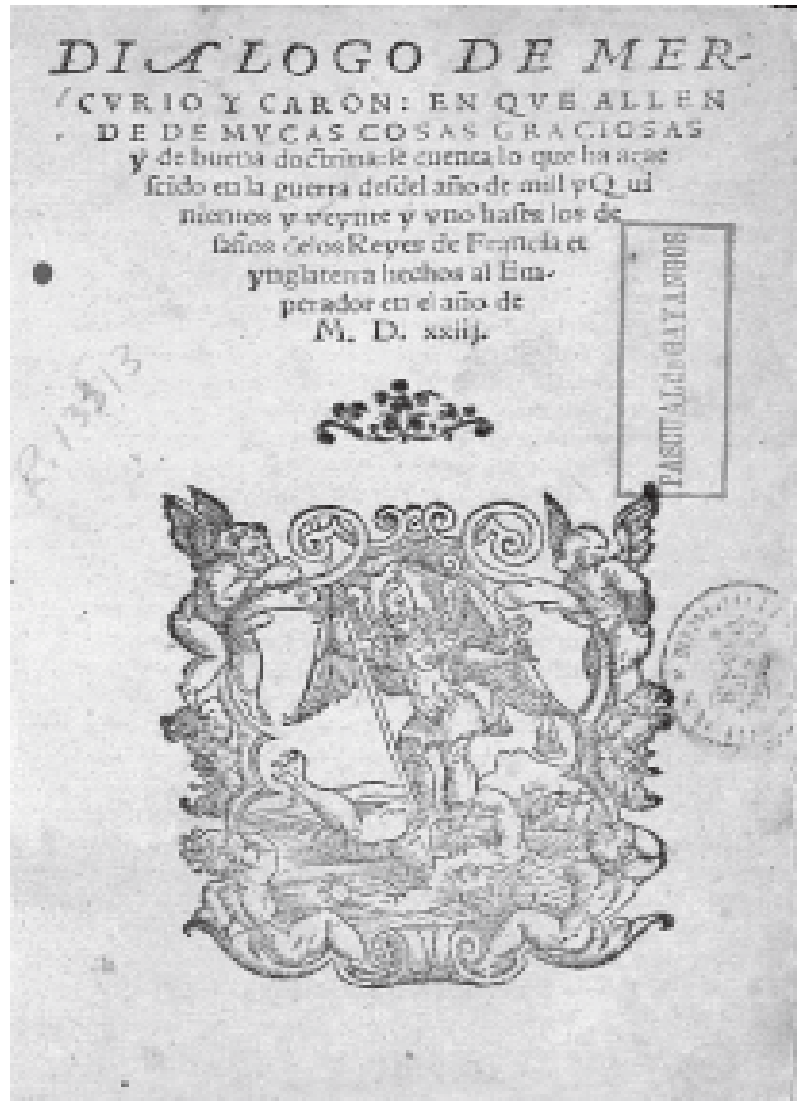 DIALOGO DE MER-
CVRIO Y CARON: EN QVE ALLEN
DE DE MVCAS COSAS GRACIOSAS
y de buena doctrina: se cuenta lo que ha acae
scido en la guerra desdel año de mill y Qui
nientos y veynte y vno hasta los de
safios delos Reyes de Francia et
ynglaterra hechos al Em-
perador en el año de
M. D. xxiij.
R. 13313
PASCUAL de GAYANGOS